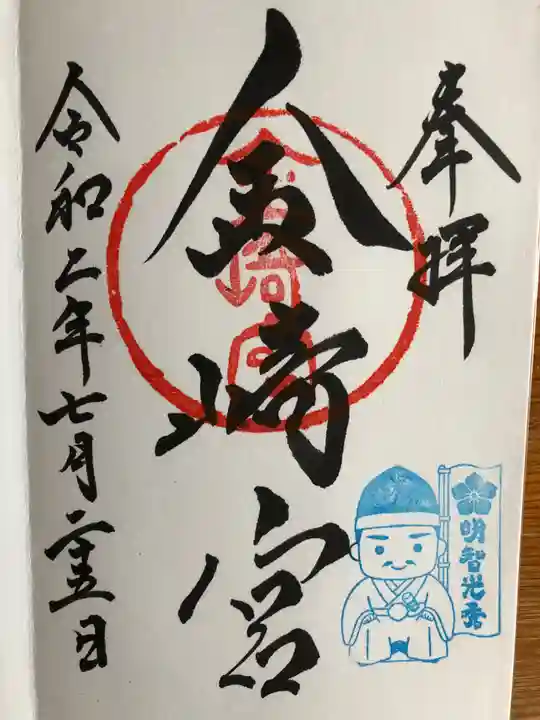 奉拝
金崎宮
金崎宮
令和二年七月二十五日
明智光秀